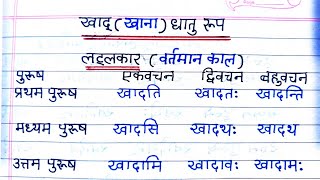 खाद् (खाना) धातु रूप
लट्लकार (वर्तमान काल)
पुरूष एकवचन द्विवचन बहुवचन
प्रथम पुरूष खादति खादतः खादन्ति
मध्यम पुरूष खादसि खादथः खादथ
उत्तम पुरूष खादामि खादावः खादामः